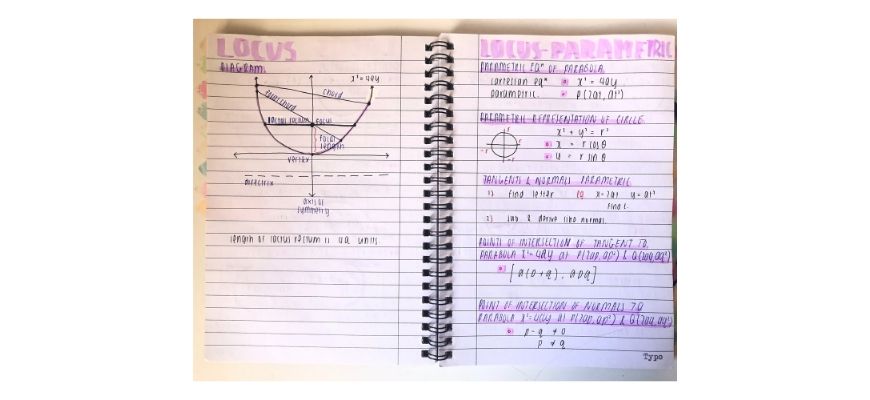 LOCUS
DIAGRAM
x² = 4ay
chord
focal chord
lactus rectum
focus
focal length
vertex
directrix
axis of symmetry
length of lactus rectum is 4a units.
LOCUS-PARAMETRIC
PARAMETRIC EQⁿ OF PARABOLA
cartesian eqⁿ x² = 4ay
parametric P(2at, at²)
PARAMETRIC REPRESENTATION OF CIRCLE
x² + y² = r²
x = r cos θ
y = r sin θ
r
-r
r
-r
TANGENTS & NORMALS PARAMETRIC
1) find letter eg x=2at y=at²
find t.
2) sub & derive like normal.
POINTS OF INTERSECTION OF TANGENT TO
PARABOLA X²=4ay at P(2ap, ap²) & Q(2aq, aq²)
[a(p+q), apq]
POINT OF INTERSECTION OF NORMALS TO
PARABOLA X²=4ay at P(2ap, ap²) & Q(2aq, aq²)
p-q ≠ 0
p ≠ q
Typo